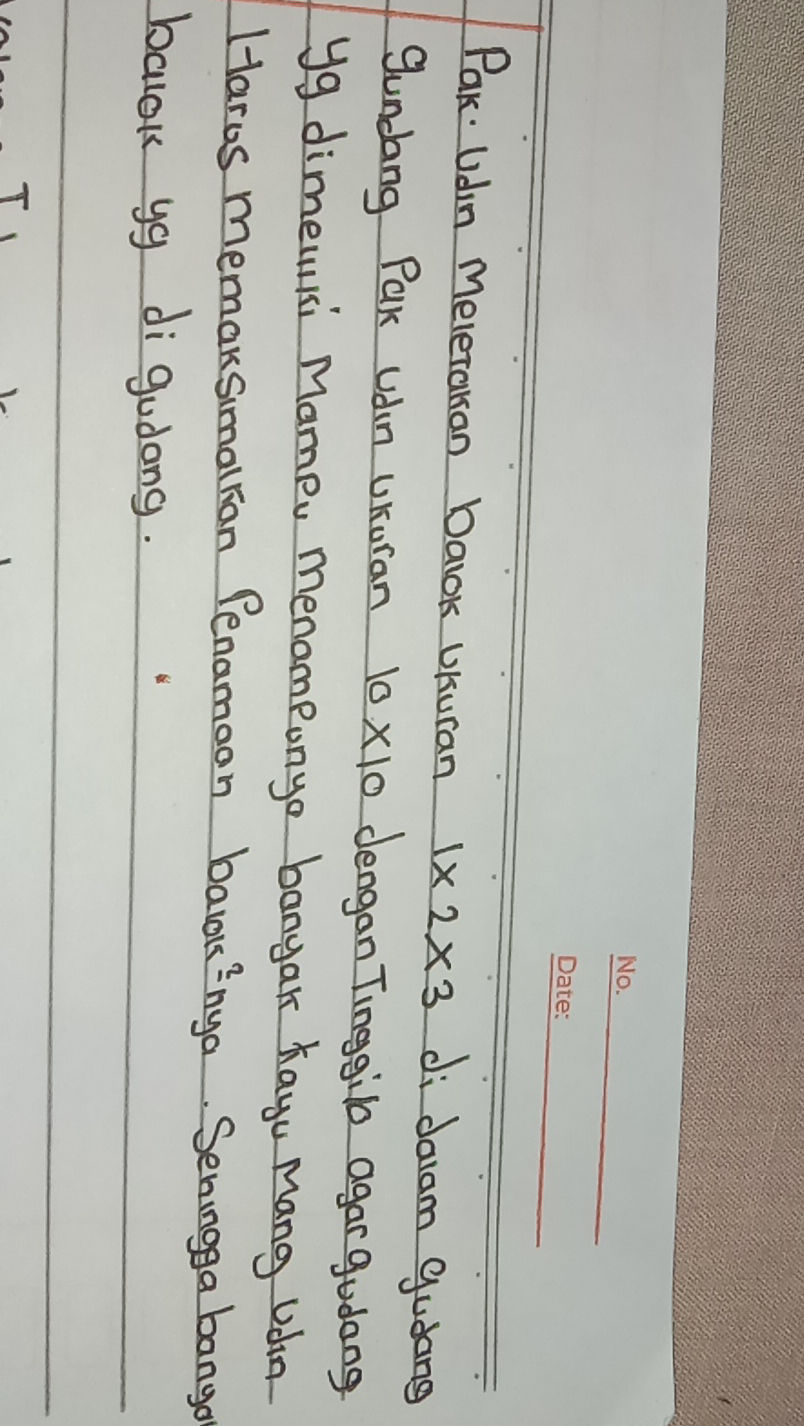 No.
Date:
Pak. Udin Meletakan balok ukuran 1x2x3 di dalam gudang
gundang Pak Udin ukuran 10x10 dengan Tinggi 10 agar gudang
yg dimeliki Mampu menampunya banyak kayu Mang Udin
Harus memaksimalkan Penamaan balok²nya. Sehingga banyak
balok yg di gudang.